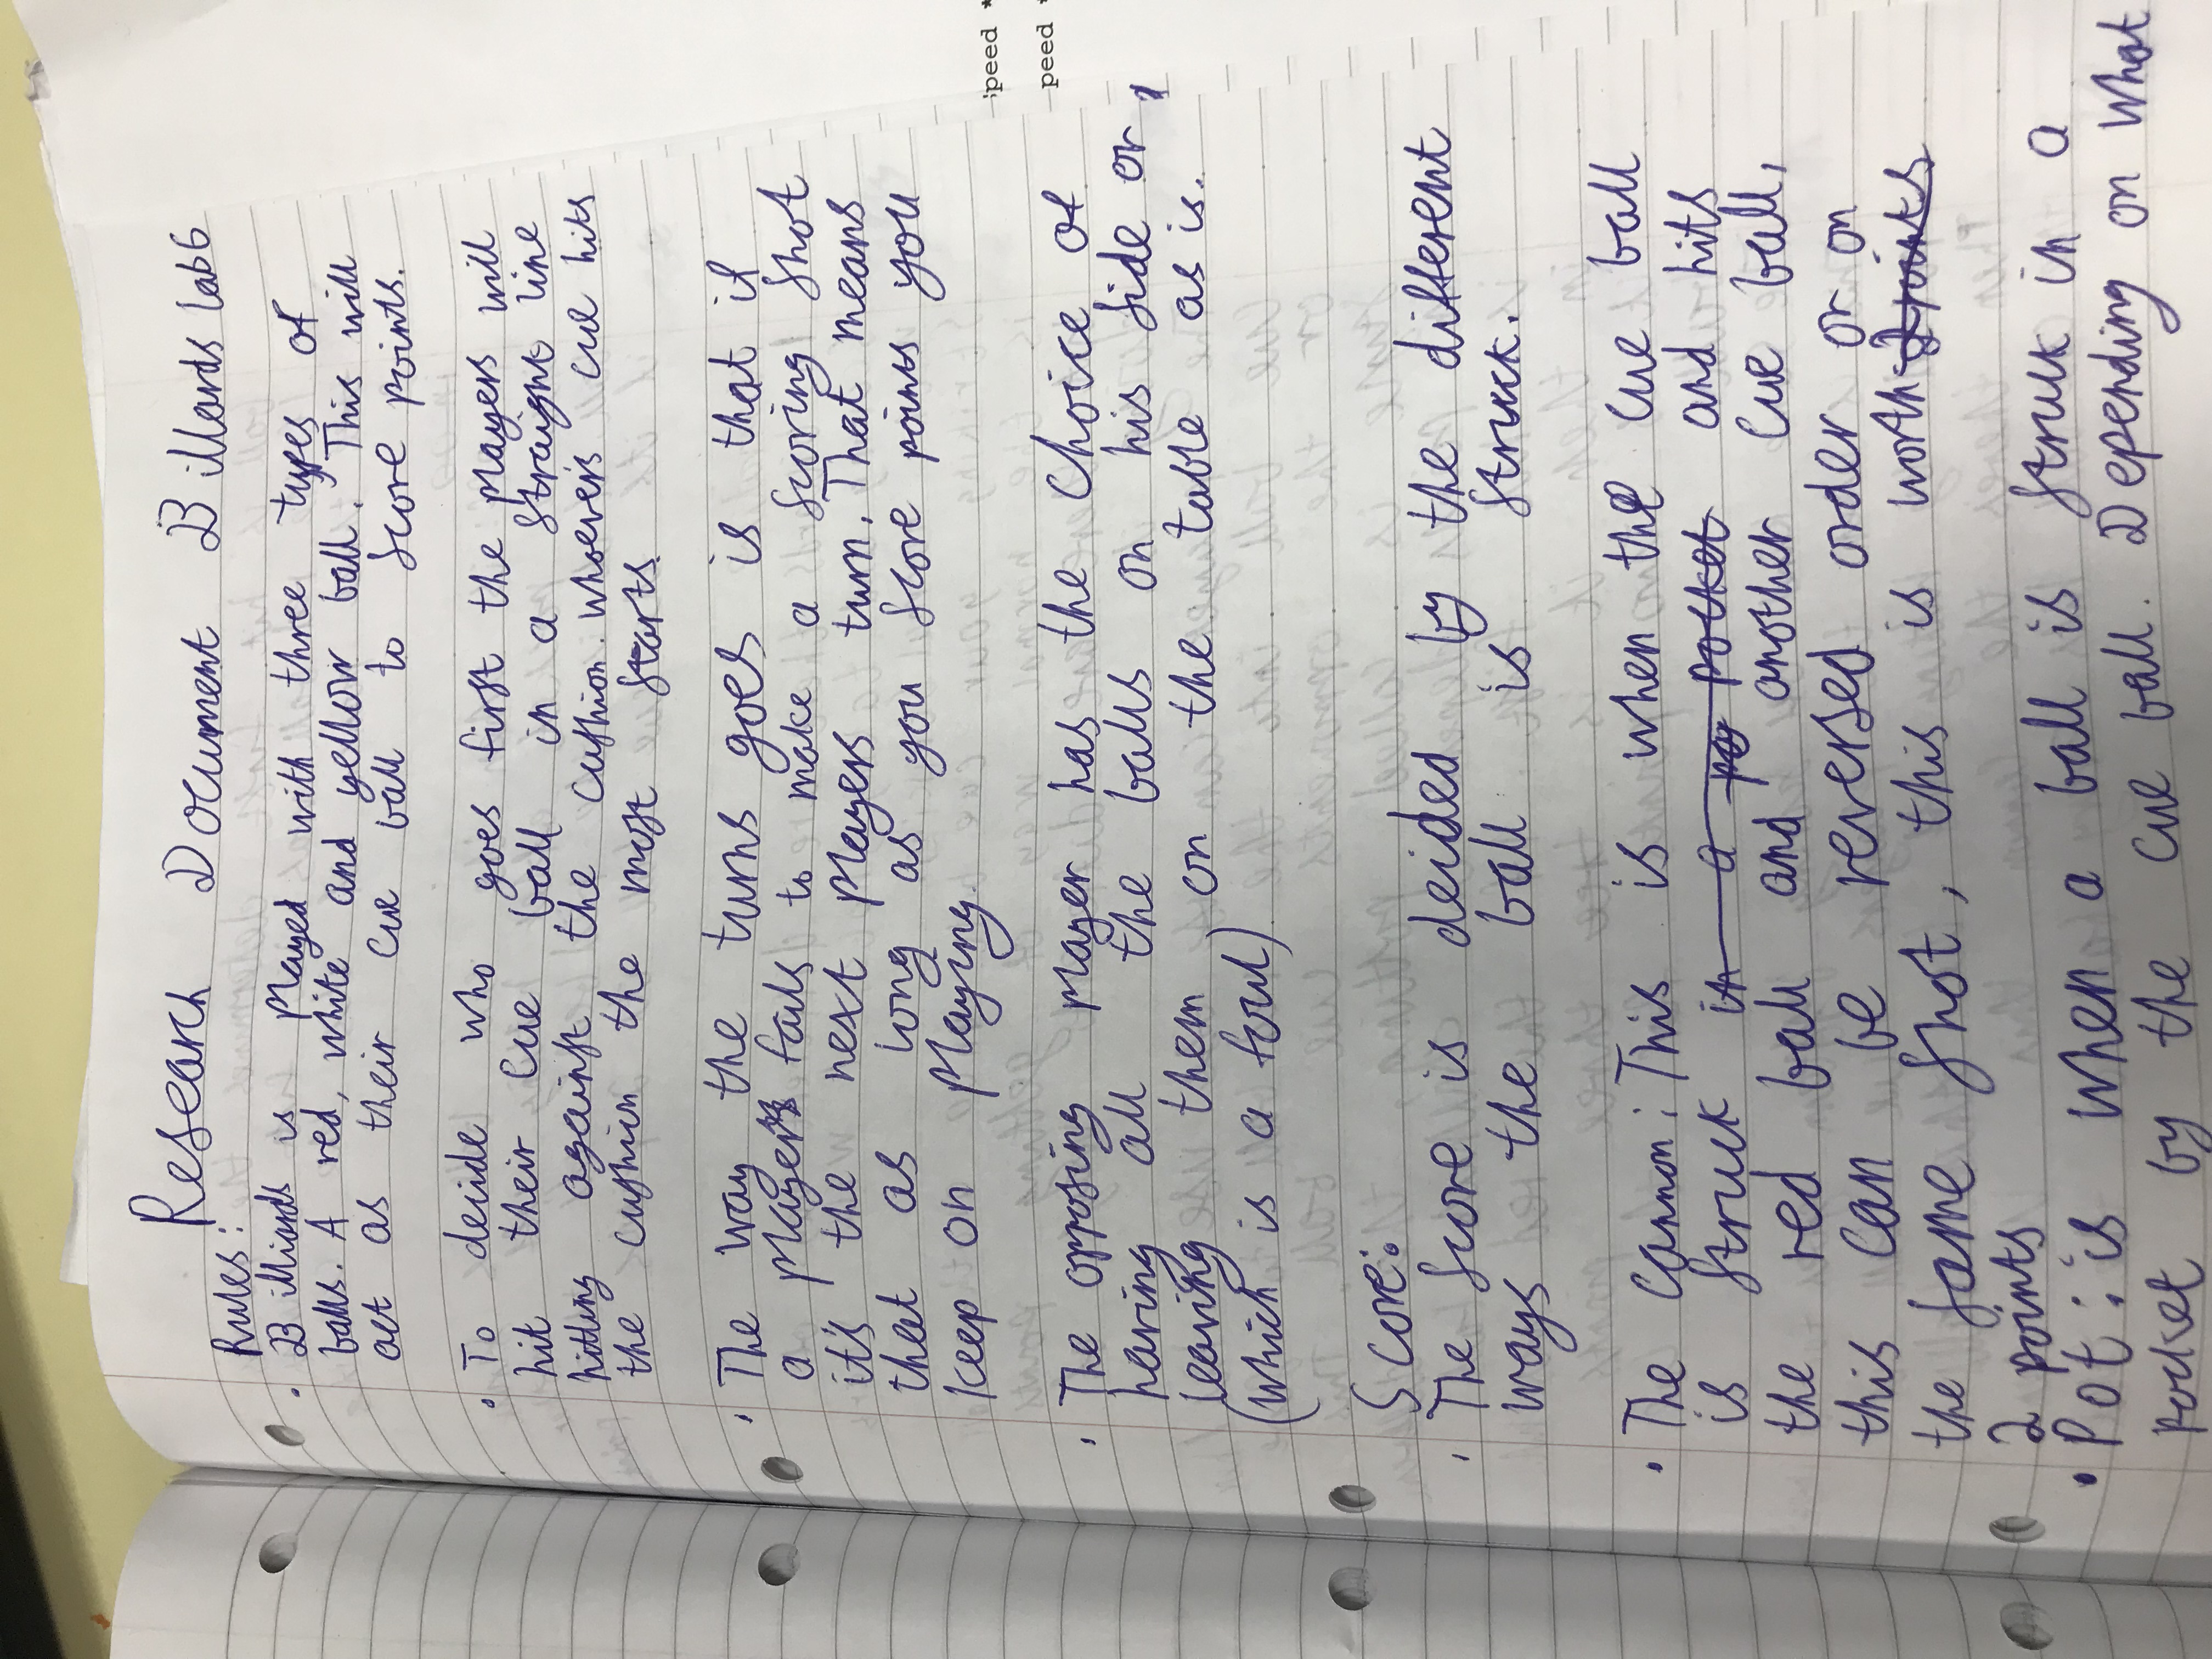 Research Document Billards lab6
Rules:
• Billiards is played with three types of
balls. A red, white and yellow ball. This will
act as their cue ball to score points.
• To decide who goes first the players will
hit their cue ball in a straight line
hitting against the cushion. Whoever's cue hits
the cushion the most starts.
• The way the turns goes is that if
a player fails to make a scoring shot
it's the next players turn. That means
that as long as you score points you
keep on playing.
• The opposing player has the choice of
having all the balls on his side or
leaving them on the table as is.
(which is a foul)
Score:
• The score is deided by the different
ways the ball is struck.
• The cannon: This is when the cue ball
is struck in a po pocket and hits
the red ball and another cue ball,
this can be reversed order or on
the same shot, this is worth 2 points
2 points
• Pot: is when a ball is struck in a
pocket by the cue ball. Depending on what
peed *
peed